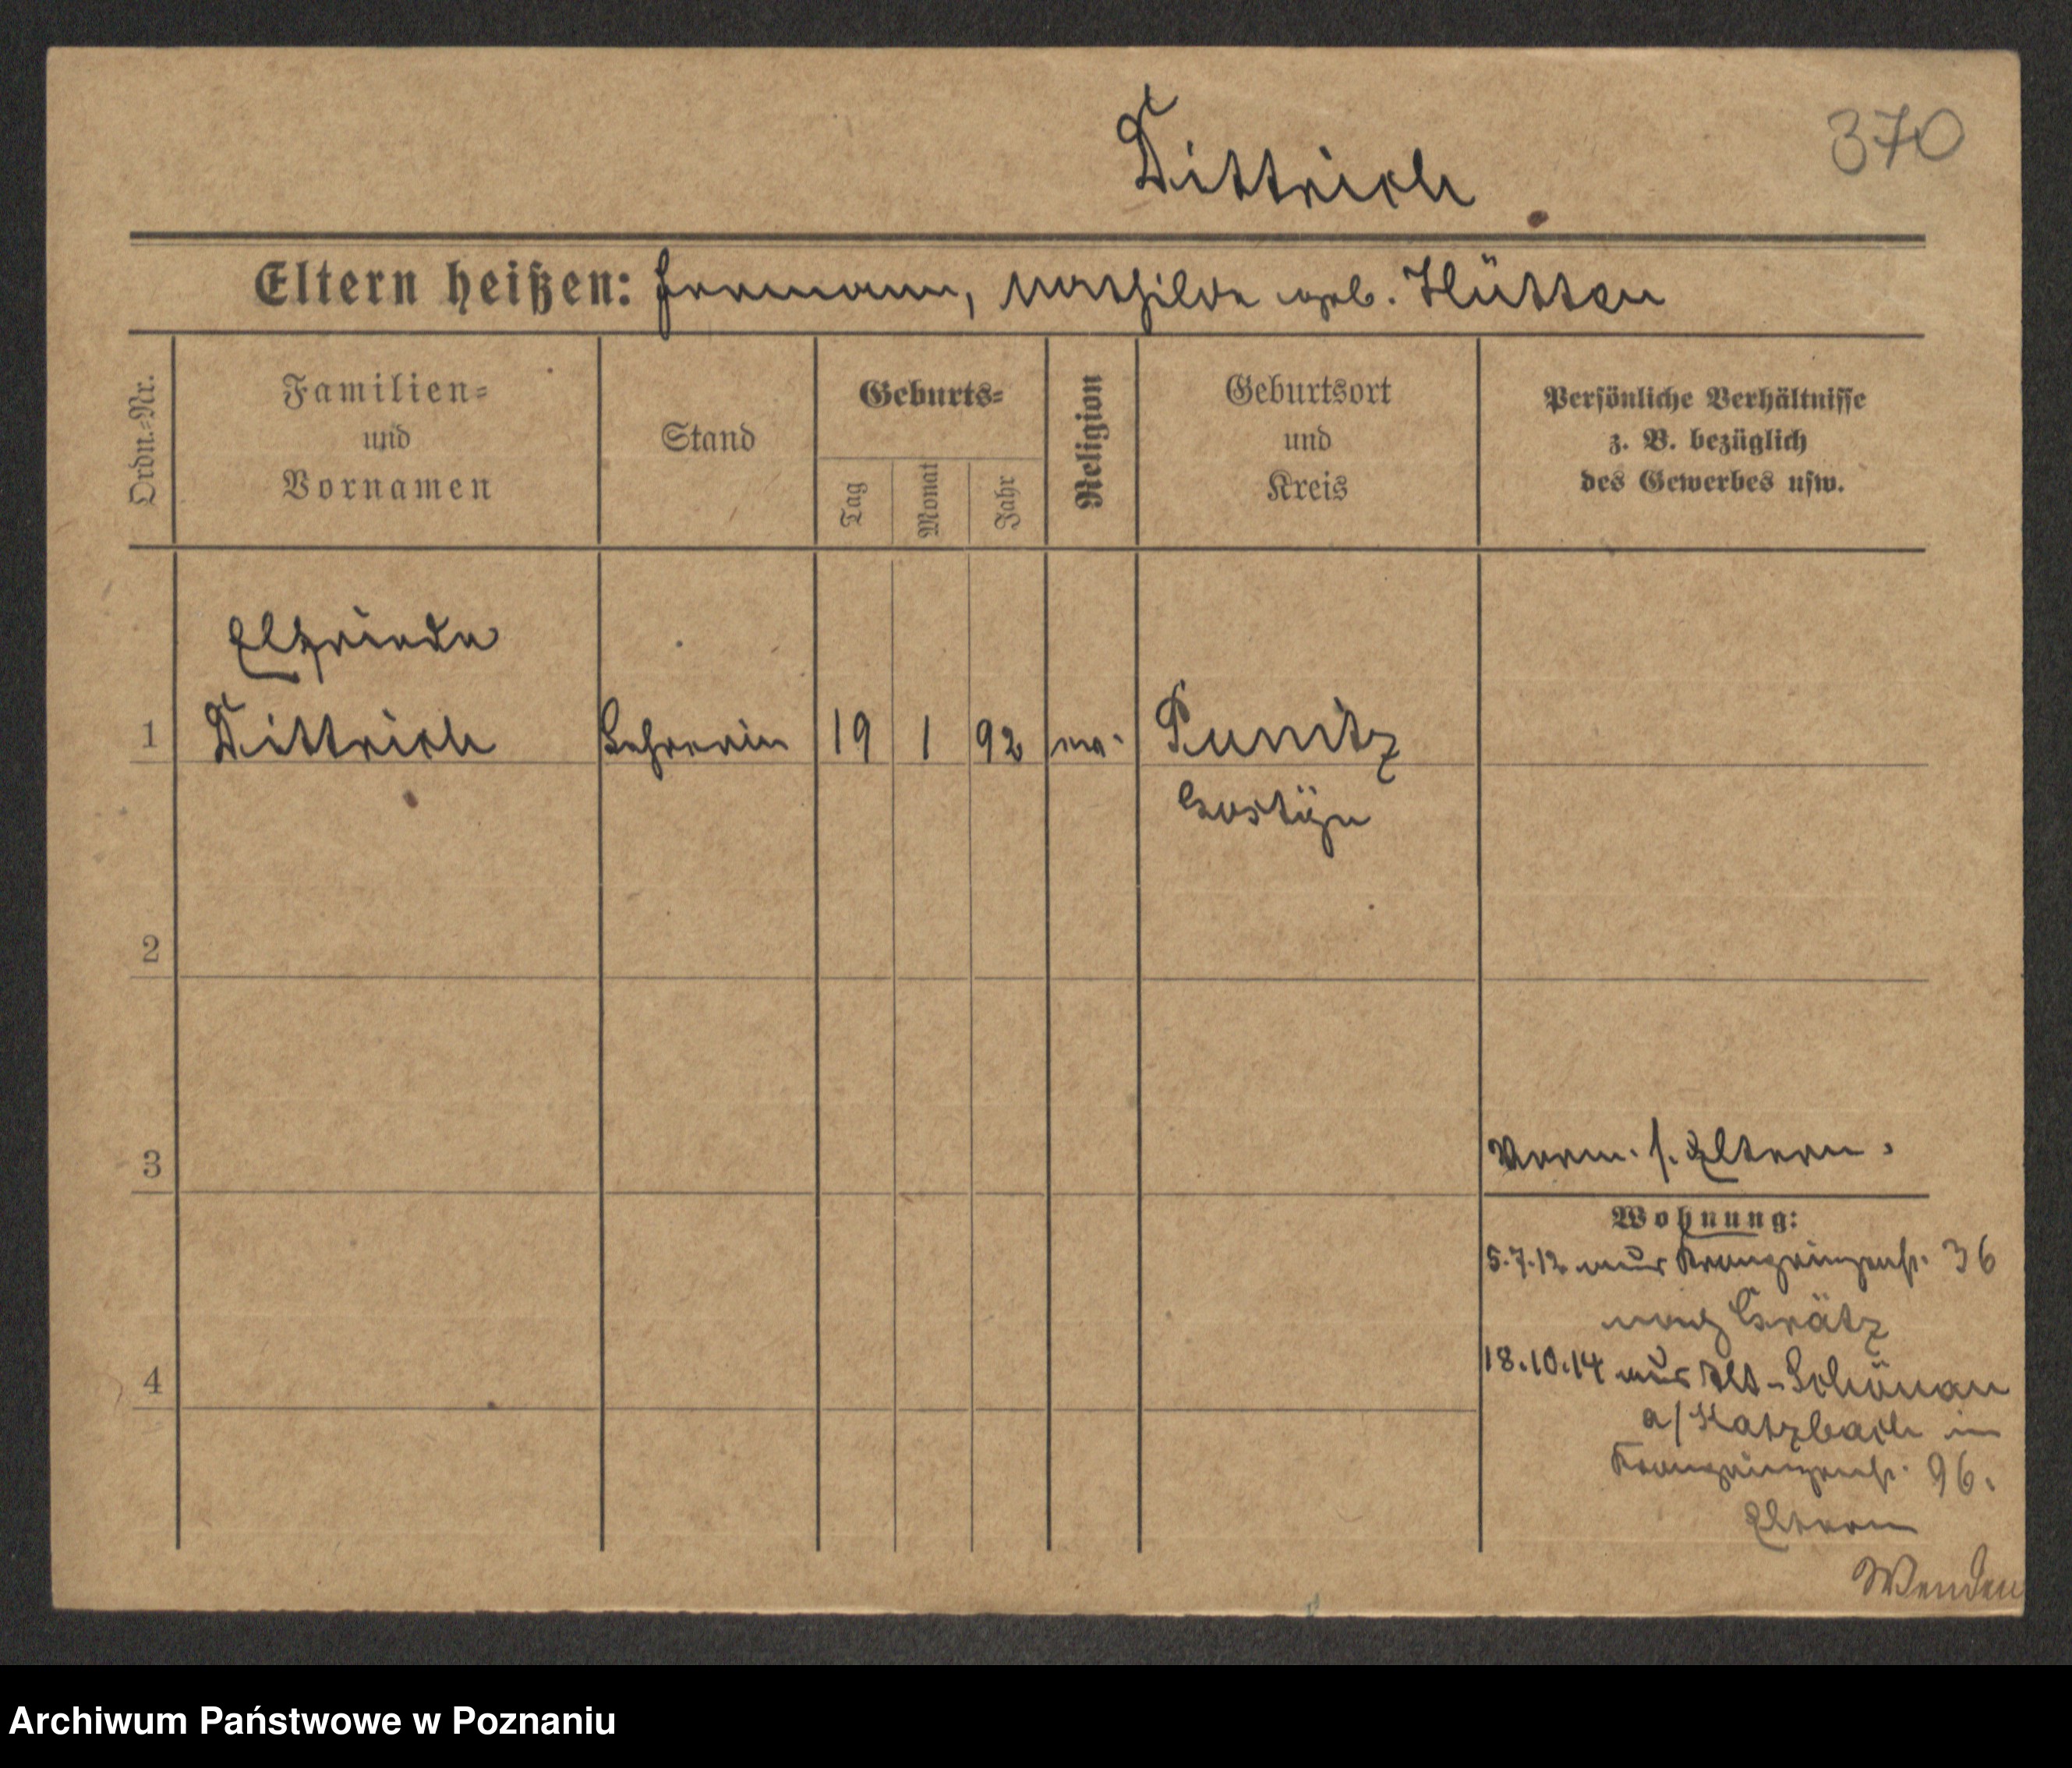 370
Dittrich
Eltern heißen: Hermann, Mathilde geb. Hütter
Ordn.=Nr.
Familien=
und
Vornamen
Stand
Geburts=
Tag
Monat
Jahr
Religion
Geburtsort
und
Kreis
Persönliche Verhältnisse
z. B. bezüglich
des Gewerbes usw.
Elfriede
1 Dittrich Lehrerin 19 1 92 ev. Punitz
Gostÿn
2
3
Verm. s. Eltern.
Wohnung:
5.7.12 aus Kronprinzenstr. 36
nach Grätz
4
18.10.14 aus Alt-Schönau
a/Katzbach in
Kronprinzenstr. 96.
Eltern
Wenden
Archiwum Państwowe w Poznaniu